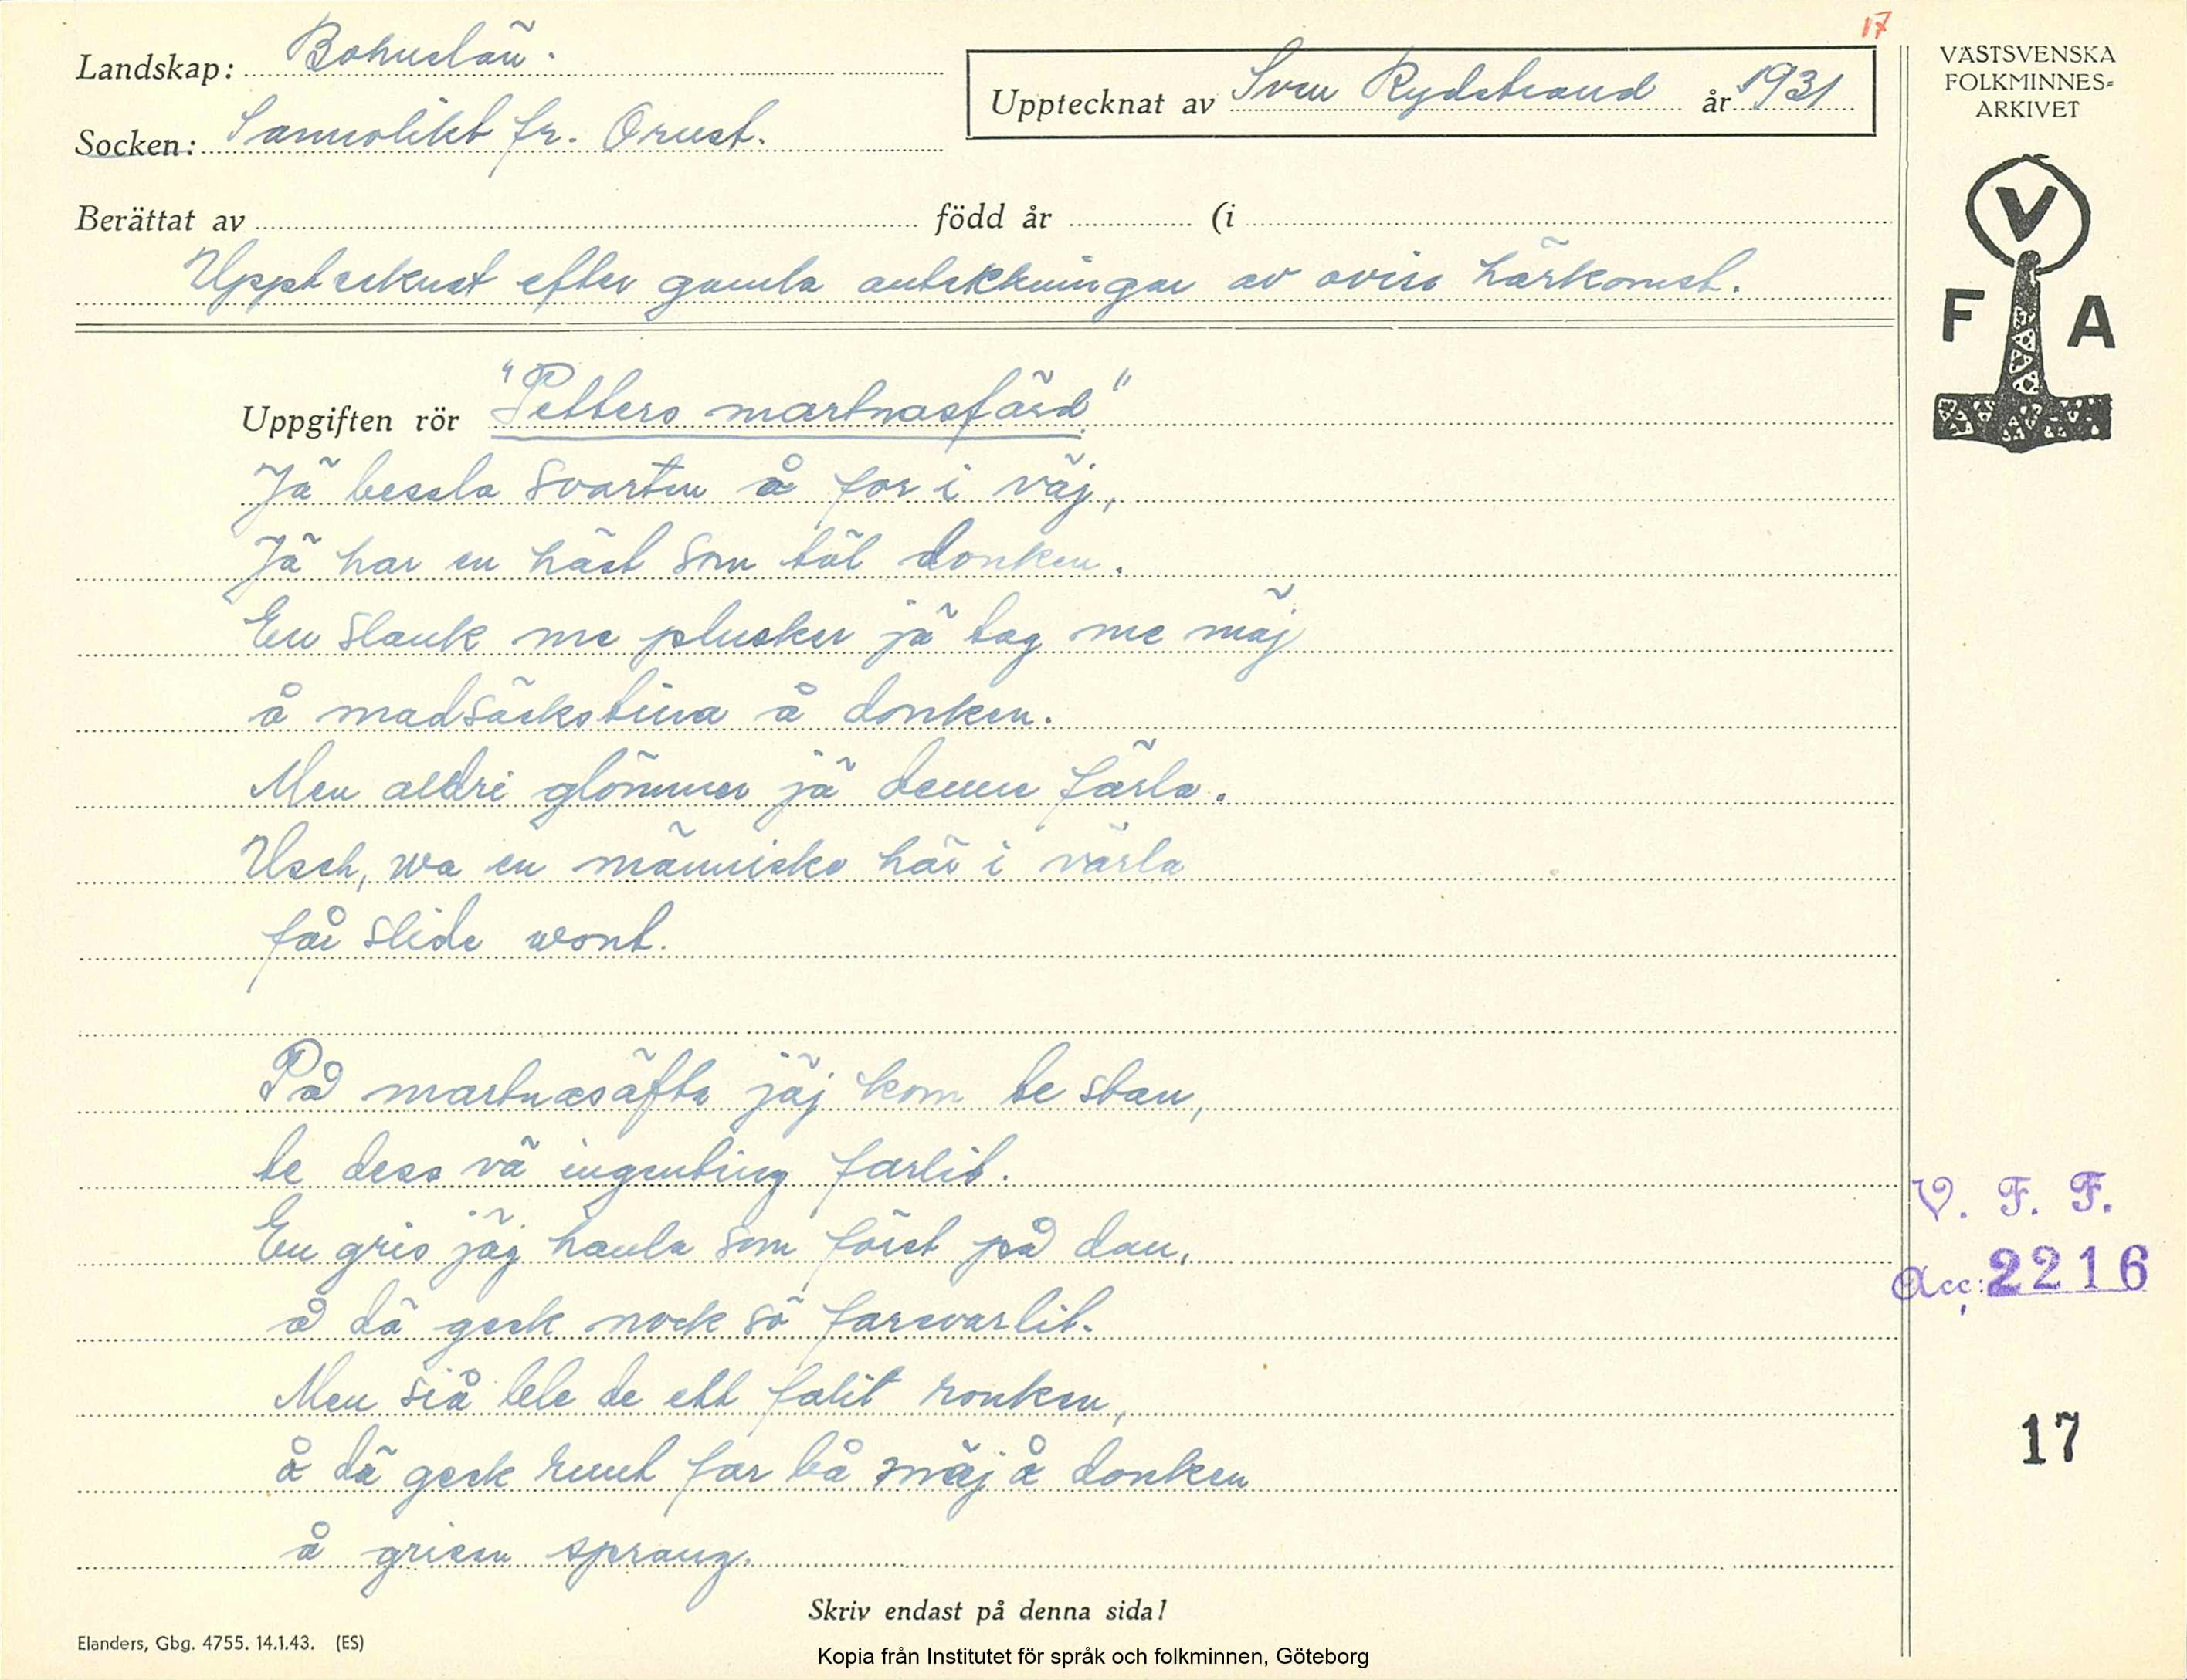 17
Landskap: Bohuslän.
Socken: Sannolikt fr. Orust.
Upptecknat av Sven Rydstrand år 1931
VÄSTSVENSKA
FOLKMINNES=
ARKIVET
V
F A
Berättat av född år (i
Upptecknat efter gamla anteckningar av oviss härkomst.
Uppgiften rör "Petters martnasfärd"
Jä bessla Svarten å for i väj,
Jä har en häst som täl donken.
En slank me plusker jä tag me mäj
å madsäckstina å donken.
Men aldri glömmer jä denne färla.
Usch, wa en människe här i värla
får slide wont.
På martnasäfta jäj kom te stan,
te dess vä ingenting farlit.
En gris jäj hanla som först på dan,
å dä geck nock så farsvarlit.
Men siå lele de ett falit ronken,
å dä geck runt far bå mäj å donken
å grisen sprang.
V. F. F.
Acc: 2216
17
Skriv endast på denna sida!
Elanders, Gbg. 4755. 14.1.43. (ES)
Kopia från Institutet för språk och folkminnen, Göteborg